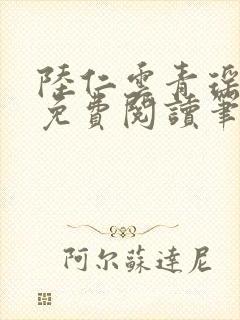 陸仁雲青瑶
免費閱讀筆
阿尔蘇達尼